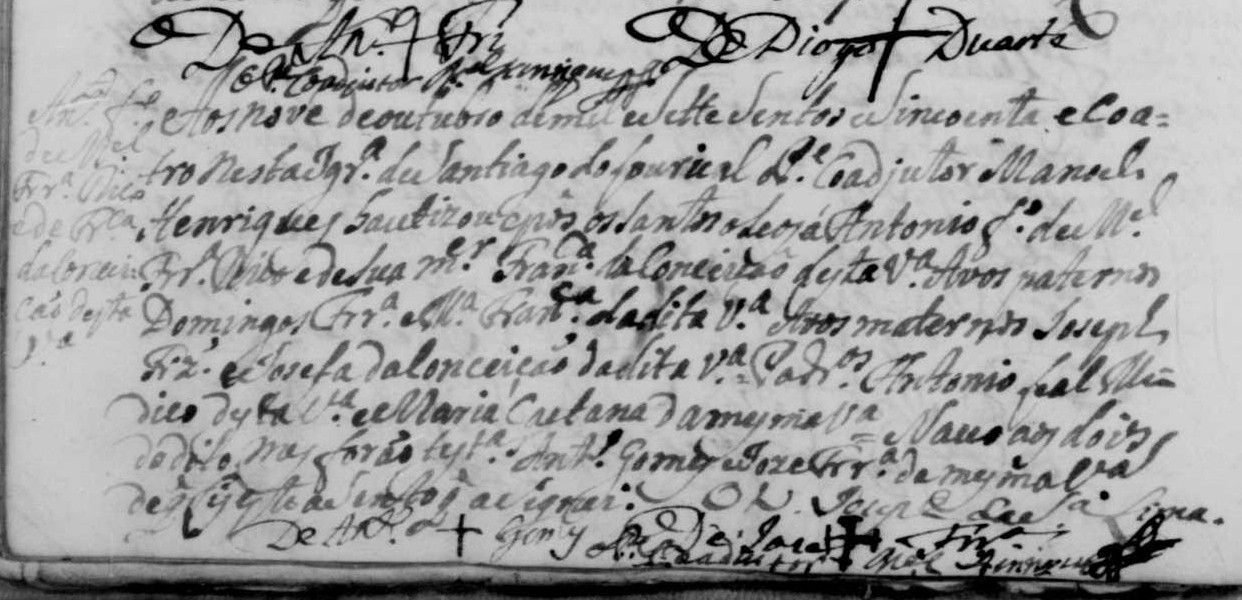 De An.º + Frž
De Diogo + Duarte
O P.e Coadjutor M.el Henriques
An.to f.o
de M.el
Frr.ª Dias
e de Fr.ca
da Concei-
ção desta
V.ª
Aos nove de outubro de mil e sette sentos e Sincoenta e Coa=
tro nesta Igr.ª de Santiago do Souriçal o P.e Coadjutor Manoel
Henriques bautizou e pôs os santos oleos á Antonio f.o de M.el
Frr.ª Dias e de sua m.er Fran.ca da Conceição desta V.ª Avos paternos
Domingos Frr.ª e M.ª Fran.ca da dita V.ª Avos maternos Joseph
Frz. e Josefa da Conceição da dita V.ª Padr.os Antonio Leal
desta V.ª e Maria Caetana da mesma V.ª Naceo aos dois
do dito mes forão test.as Ant.º Gomes e Joze Frr.ª da mesma V.ª
de q fis este asento q asignei. O L. Joseph de Lima.
De An.to + Gomes
De Joze + Frr.ª
O P.e Coadjutor M.el Henriques